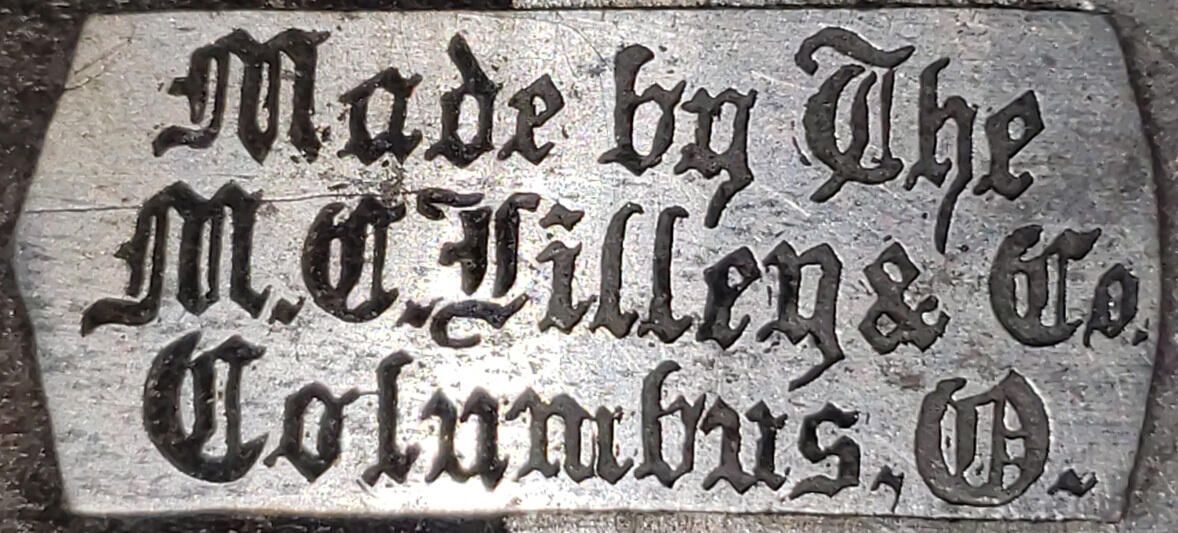 Made by The
M.C. Lilley & Co.
Columbus, O.